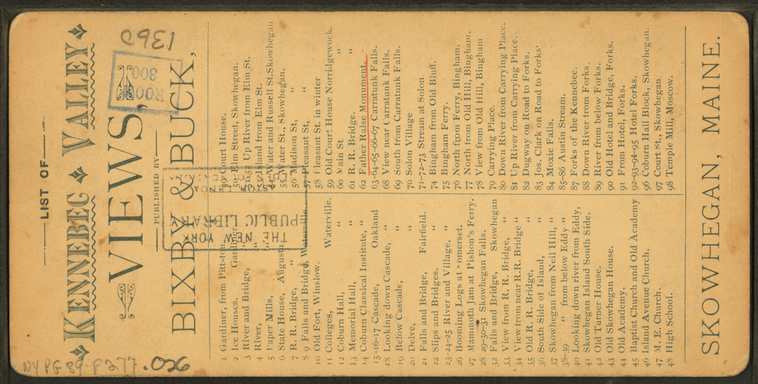 LIST OF
KENNEBEC VALLEY
VIEWS,
PUBLISHED BY
BIXBY & BUCK,
1 Gardiner, from Pittston,
2 Ice Houses,
3 River and Bridge,
4 River,
5 Paper Mills,
6 State House, Augusta
7 R. R. Bridge, "
8-9 Falls and Bridge, Waterville
10 Old Fort, Winslow.
11 Colleges, Waterville.
12 Coburn Hall, "
13 Memorial Hall, "
14 Coburn Classical Institute, "
15-16-17 Cascade, Oakland
18 Looking down Cascade, "
19 Below Cascade, "
20 Delve, "
21 Falls and Bridge, Fairfield.
22 Slips and Bridges, "
23-24-25 River and Village, "
26 Booming Logs at Somerset.
27 Mammoth Jam at Pishon's Ferry.
28 29-30-31 Skowhegan Falls.
32 Falls and Bridge, Skowhegan
33 View from R. R. Bridge, "
34 View from near R.R. Bridge "
35 Old R. R. Bridge, "
36 South Side of Island, "
37 Skowhegan from Neil Hill, "
38-39 " from below Eddy "
40 Looking down river from Eddy,
41 Skowhegan Island South Side.
42 Old Turner House.
43 Old Skowhegan House.
44 Old Academy.
45 Baptist Church and Old Academy
46 Island Avenue Church.
47 M. E. Church.
48 High School.
Court House.
50 Elm Street, Skowhegan.
Up River from Elm St.
Island from Elm St.
Water and Russell St. Skowhegan
55 Water St., Skowhegan.
56 Madison St, "
57 Pleasant St, "
58 Pleasant St. in winter
59 Old Court House Norridgewock.
60 Main St "
61 R. R. Bridge, "
62 Father Ralse Monument.
63-64-65-66-67 Carratunk Falls.
68 View near Carratunk Falls.
69 South from Carratunk Falls.
70 Solon Village
71-72-73 Stream at Solon
74 Bingham from Old Bluff.
75 Bingham Ferry.
76 North from Ferry, Bingham.
77 North from Old Hill, Bingham.
78 View from Old Hill, Bingham
79 Carrying Place.
80 Down River from Carrying Place.
81 Up River from Carrying Place.
82 Dugway on Road to Forks.
83 Jos. Clark on Road to Forks.
84 Moxie Falls.
85-86 Austin Stream.
87 Forks of the Kennebec.
88 Down River from Forks
89 River from below Forks.
90 Old Hotel and Bridge, Forks.
91 From Hotel, Forks.
92-93-94-95 Hotel Forks.
96 Coburn Hall Block, Skowhegan.
97 Court St., Skowhegan
98 Temple Mill, Moscow.
SKOWHEGAN, MAINE.
1362
ROOM
300
THE NEW YORK
PUBLIC LIBRARY
NYPG 89-F277 .026